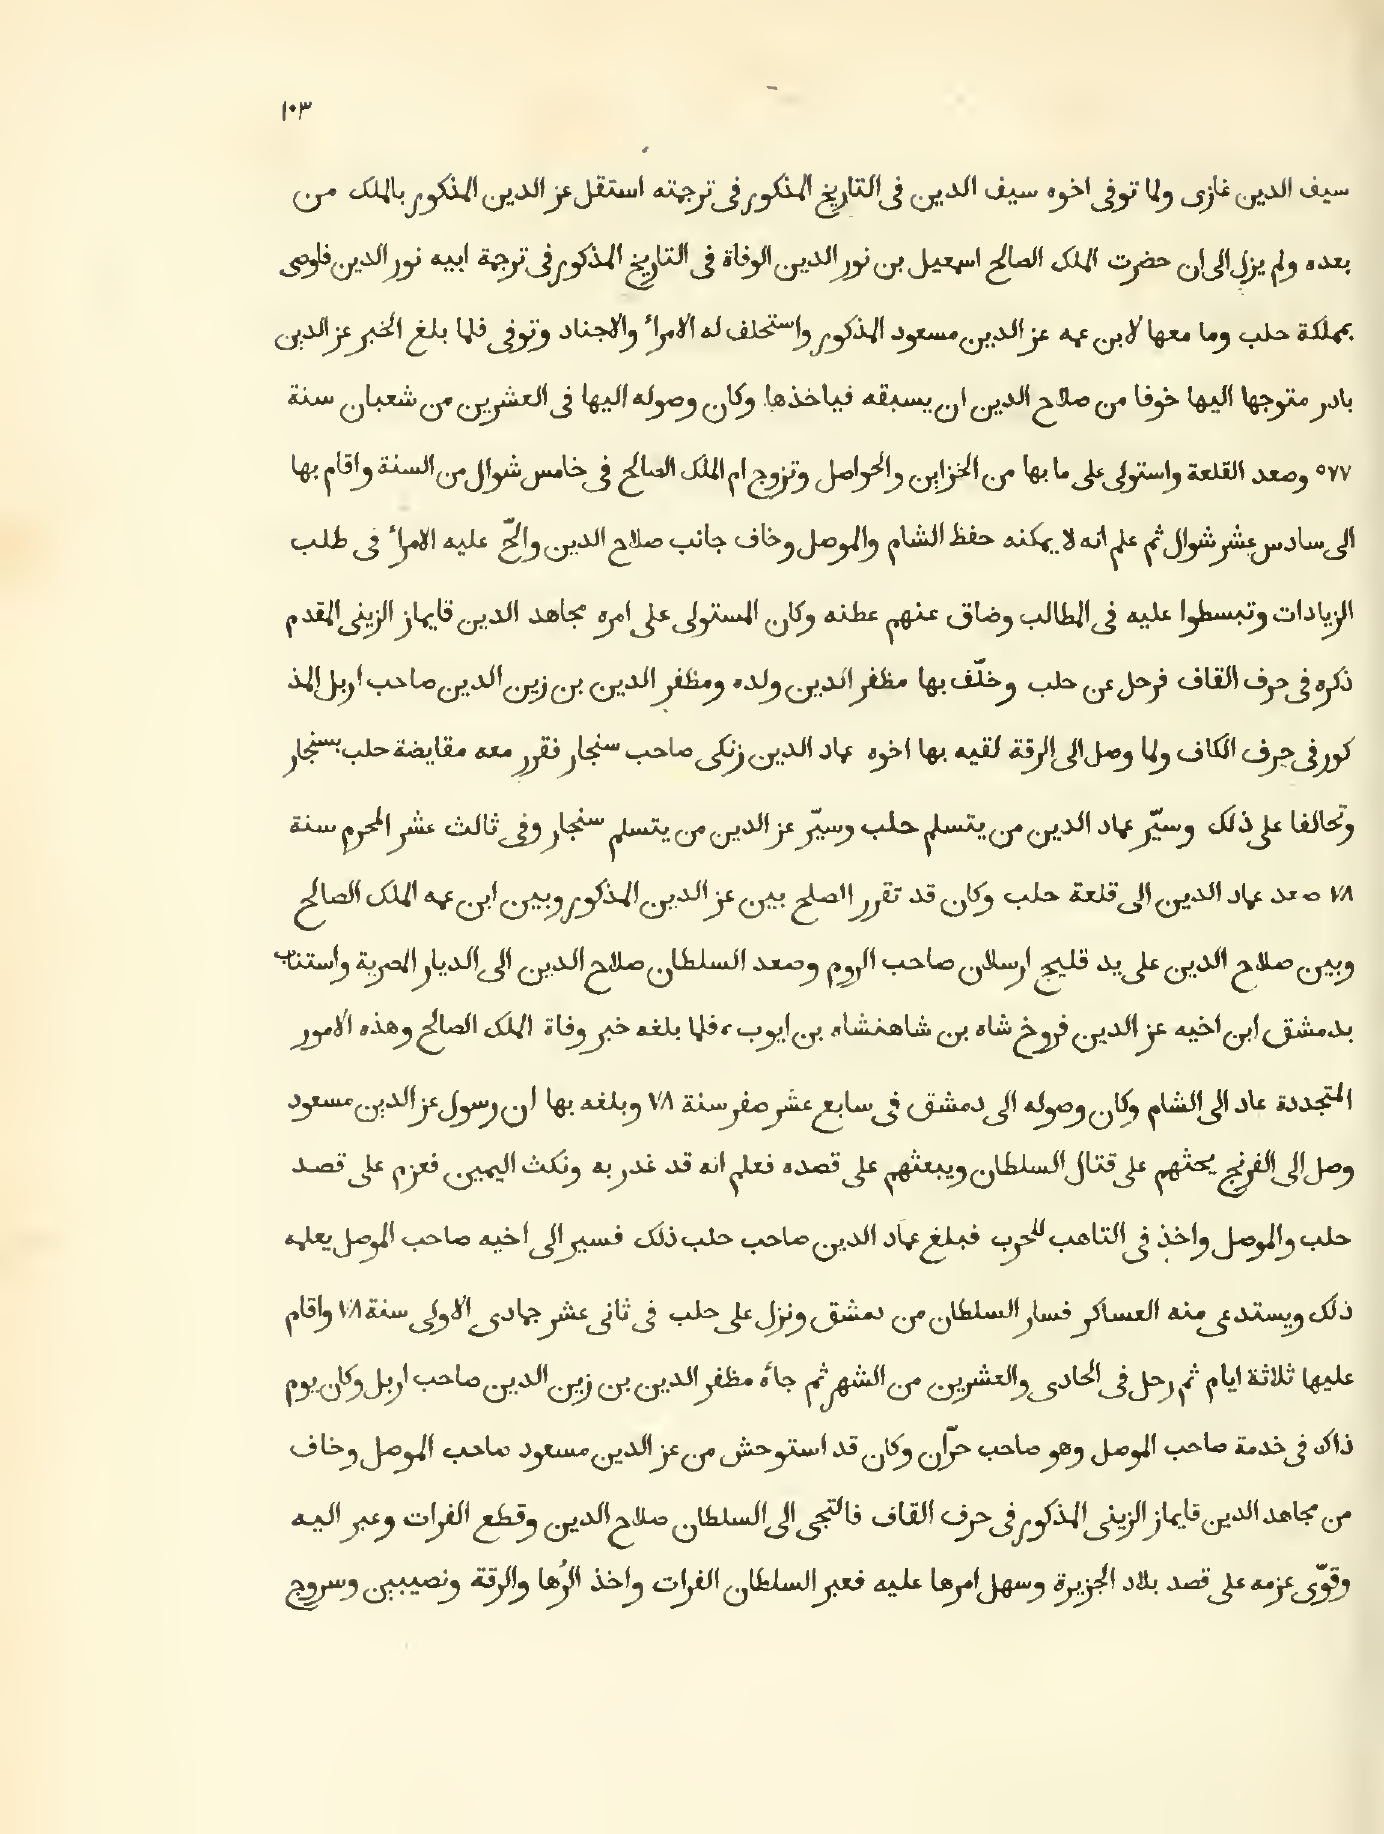 ١٠٣
سيف الدين غازى ولما توفى اخوه سيف الدين فى التاريخ المذكور فى ترجمته استقل عز الدين المذكور بالملك من
بعده ولم يزل الى ان حضرت الملك الصالح اسمعيل بن نور الدين الوفاة فى التاريخ المذكور فى ترجمة ابيه نور الدين فاوصى
بمملكة حلب وما معها لابن عمه عز الدين مسعود المذكور واستحلف له الامرأ والاجناد وتوفى فلما بلغ الخبر عز الدين
بادر متوجها اليها خوفا من صلاح الدين ان يسبقه فياخذها وكان وصوله اليها فى العشرين من شعبان سنة
٥٧٧ وصعد القلعة واستولى على ما بها من الخزاين والحواصل وتزوج ام الملك الصالح فى خامس شوال من السنة واقام بها
الى سادس عشر شوال ثم علم انه لا يمكنه حفظ الشام والموصل وخاف جانب صلاح الدين والحّ عليه الامرأ فى طلب
الزيادات وتبسطوا عليه فى المطالب وضاق عنهم عطنه وكان المستولى على امره مجاهد الدين قايماز الزينى المقدم
ذكره فى حرف القاف فرحل عن حلب وخلّف بها مظفر الدين ولده ومظفر الدين بن زين الدين صاحب اربل المذ
كور فى حرف الكاف ولما وصل الى الرقة لقيه بها اخوه عماد الدين زنكى صاحب سنجار فقرر معه مقايضة حلب بسنجار
وتحالفا على ذلك وسيّر عماد الدين من يتسلم حلب وسيّر عز الدين من يتسلم سنجار وفى ثالث عشر المحرم سنة
٧٨ صعد عماد الدين الى قلعة حلب وكان قد تقرر الصلح بين عز الدين المذكور وبين ابن عمه الملك الصالح
وبين صلاح الدين على يد قليج ارسلان صاحب الروم وصعد السلطان صلاح الدين الى الديار المصرية واستناب
بدمشق ابن اخيه عز الدين فروخ شاه بن شاهنشاه بن ايوب، فلما بلغه خبر وفاة الملك الصالح وهذه الامور
المتجددة عاد الى الشام وكان وصوله الى دمشق فى سابع عشر صفر سنة ٧٨ وبلغه بها ان رسول عز الدين مسعود
وصل الى الفرنج يحثهم على قتال السلطان ويبعثهم على قصده فعلم انه قد غدر به ونكث اليمين فعزم على قصد
حلب والموصل واخذ فى التاهب للحرب فبلغ عماد الدين صاحب حلب ذلك فسير الى اخيه صاحب الموصل يعلمه
ذلك ويستدعى منه العساكر فسار السلطان من دمشق ونزل على حلب فى ثانى عشر جمادى الاولى سنة ٧٨ واقام
عليها ثلاثة ايام ثم رحل فى الحادى والعشرين من الشهر ثم جأه مظفر الدين بن زين الدين صاحب اربل وكان يوم
ذاك فى خدمة صاحب الموصل وهو صاحب حرّان وكان قد استوحش من عز الدين مسعود صاحب الموصل وخاف
من مجاهد الدين قايماز الزينى المذكور فى حرف القاف فالتجى الى السلطان صلاح الدين وقطع الفرات وعبر اليه
وقوّى عزمه على قصد بلاد الجزيرة وسهل امرها عليه فعبر السلطان الفرات واخذ الرُها والرقة ونصيبين وسروج